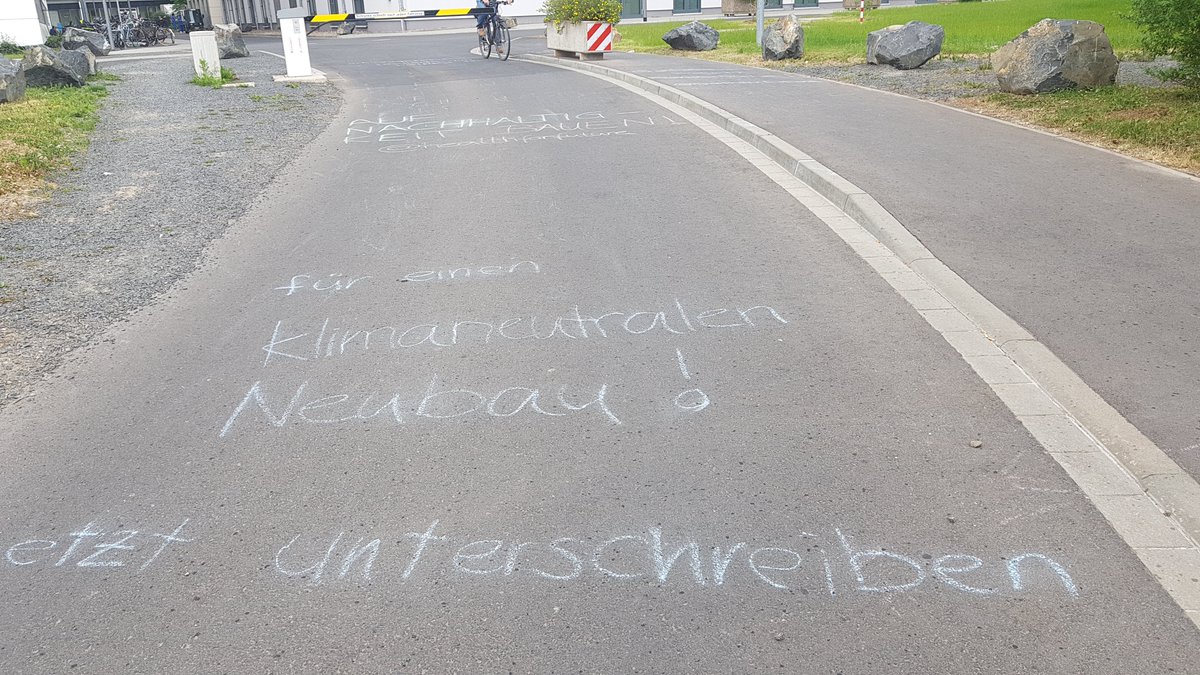 AUF
NACHHALTIG
KEIT BAUEN!
für einen
klimaneutralen
Neubau!
etzt unterschreiben